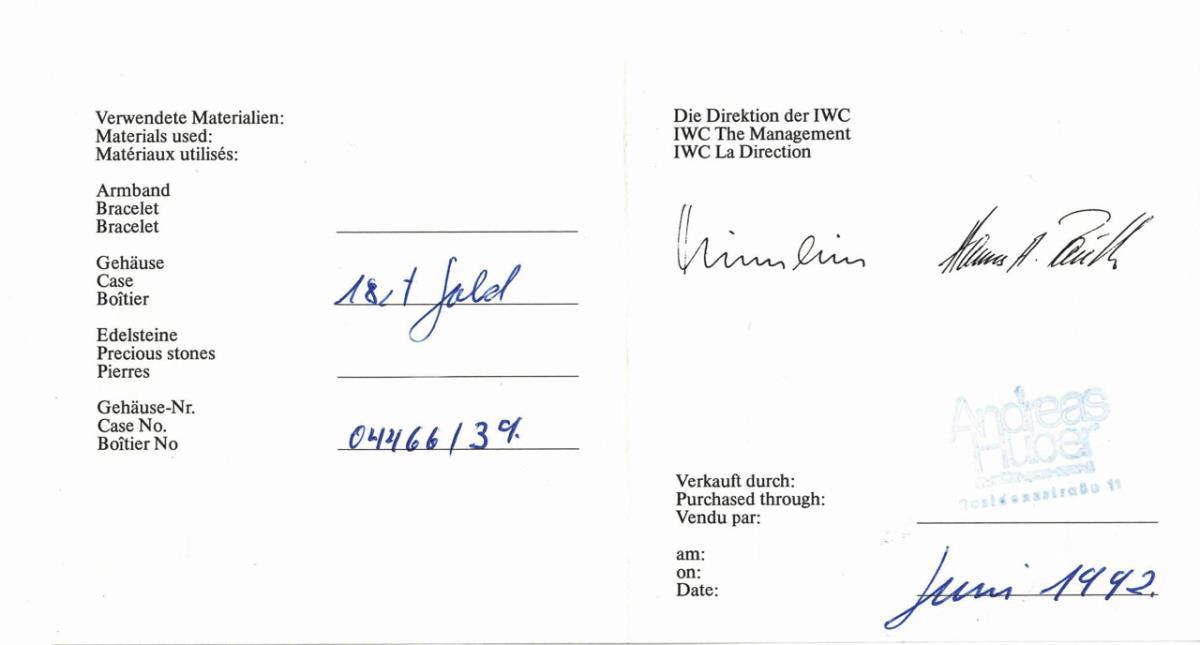 Verwendete Materialien:
Materials used:
Matériaux utilisés:
Armband
Bracelet
Bracelet
Gehäuse
Case
Boîtier
18ct Gold
Edelsteine
Precious stones
Pierres
Gehäuse-Nr.
Case No.
Boîtier No
04466/39.
Die Direktion der IWC
IWC The Management
IWC La Direction
Hannes A.
Andreas
Huber
Residenzstraße 11
Verkauft durch:
Purchased through:
Vendu par:
am:
on:
Date:
Juni 1992.